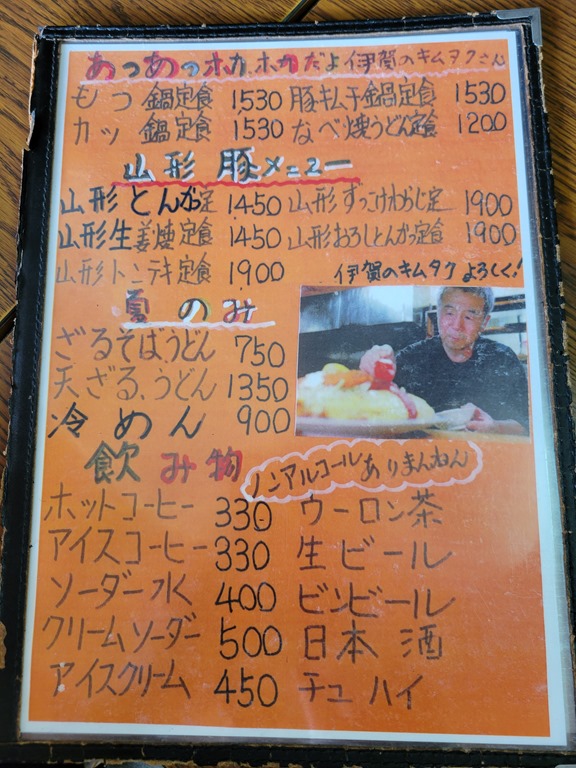 あつあつホカホカだよ伊賀のキムタクさん
もつ鍋定食 1530 豚キムチ鍋定食 1530
カツ鍋定食 1530 なべ焼うどん定食 1200
山形 豚メニュー
山形とんかつ定 1450 山形ずっこけわらじ定 1900
山形生姜焼定食 1450 山形おろしとんかつ定食 1900
山形トンテキ定食 1900 伊賀のキムタクよろしく!
夏のみ
ざるそばうどん 750
天ざる、うどん 1350
冷めん 900
飲み物 ノンアルコールありまんねん
ホットコーヒー 330 ウーロン茶
アイスコーヒー 330 生ビール
ソーダー水 400 ビンビール
クリームソーダー 500 日本酒
アイスクリーム 450 チューハイ